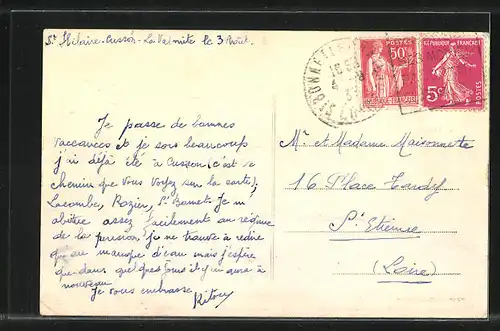 St Hilaire-Cusson-La Valmitte le 3 Août.
Je passe de bonnes
vaccances et je sors beaucoup
j'ai déjà été à Cusson (c'est le
chemin que vous voyez sur la carte),
Lacombe, Rozier, St Bonnet. Je m'
abitue assez facilement au régime
de la pension, je ne trouve à redire
qu'au manque d'eau mais j'espère
que dans quelques jours il y en aura à
nouveau.
Je vous embrasse
POSTES
50c
REPUBLIQUE FRANÇAISE
REPUBLIQUE FRANÇAISE
5c
POSTES
Mr et Madame Maisonnette
16 Place Tardy
St Etienne
(Loire)